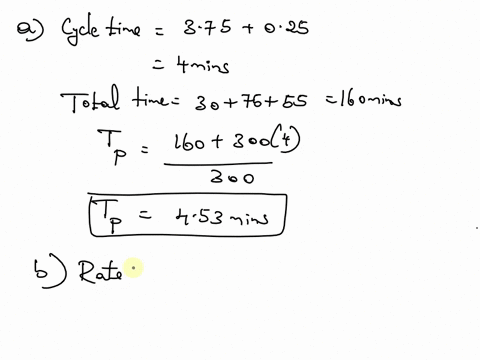 a) Cycle time = 3.75 + 0.25
= 4mins
Total time = 30+76+55 = 160mins
Tp = 160 + 300(4)
300
Tp = 4.53 mins
b) Rate